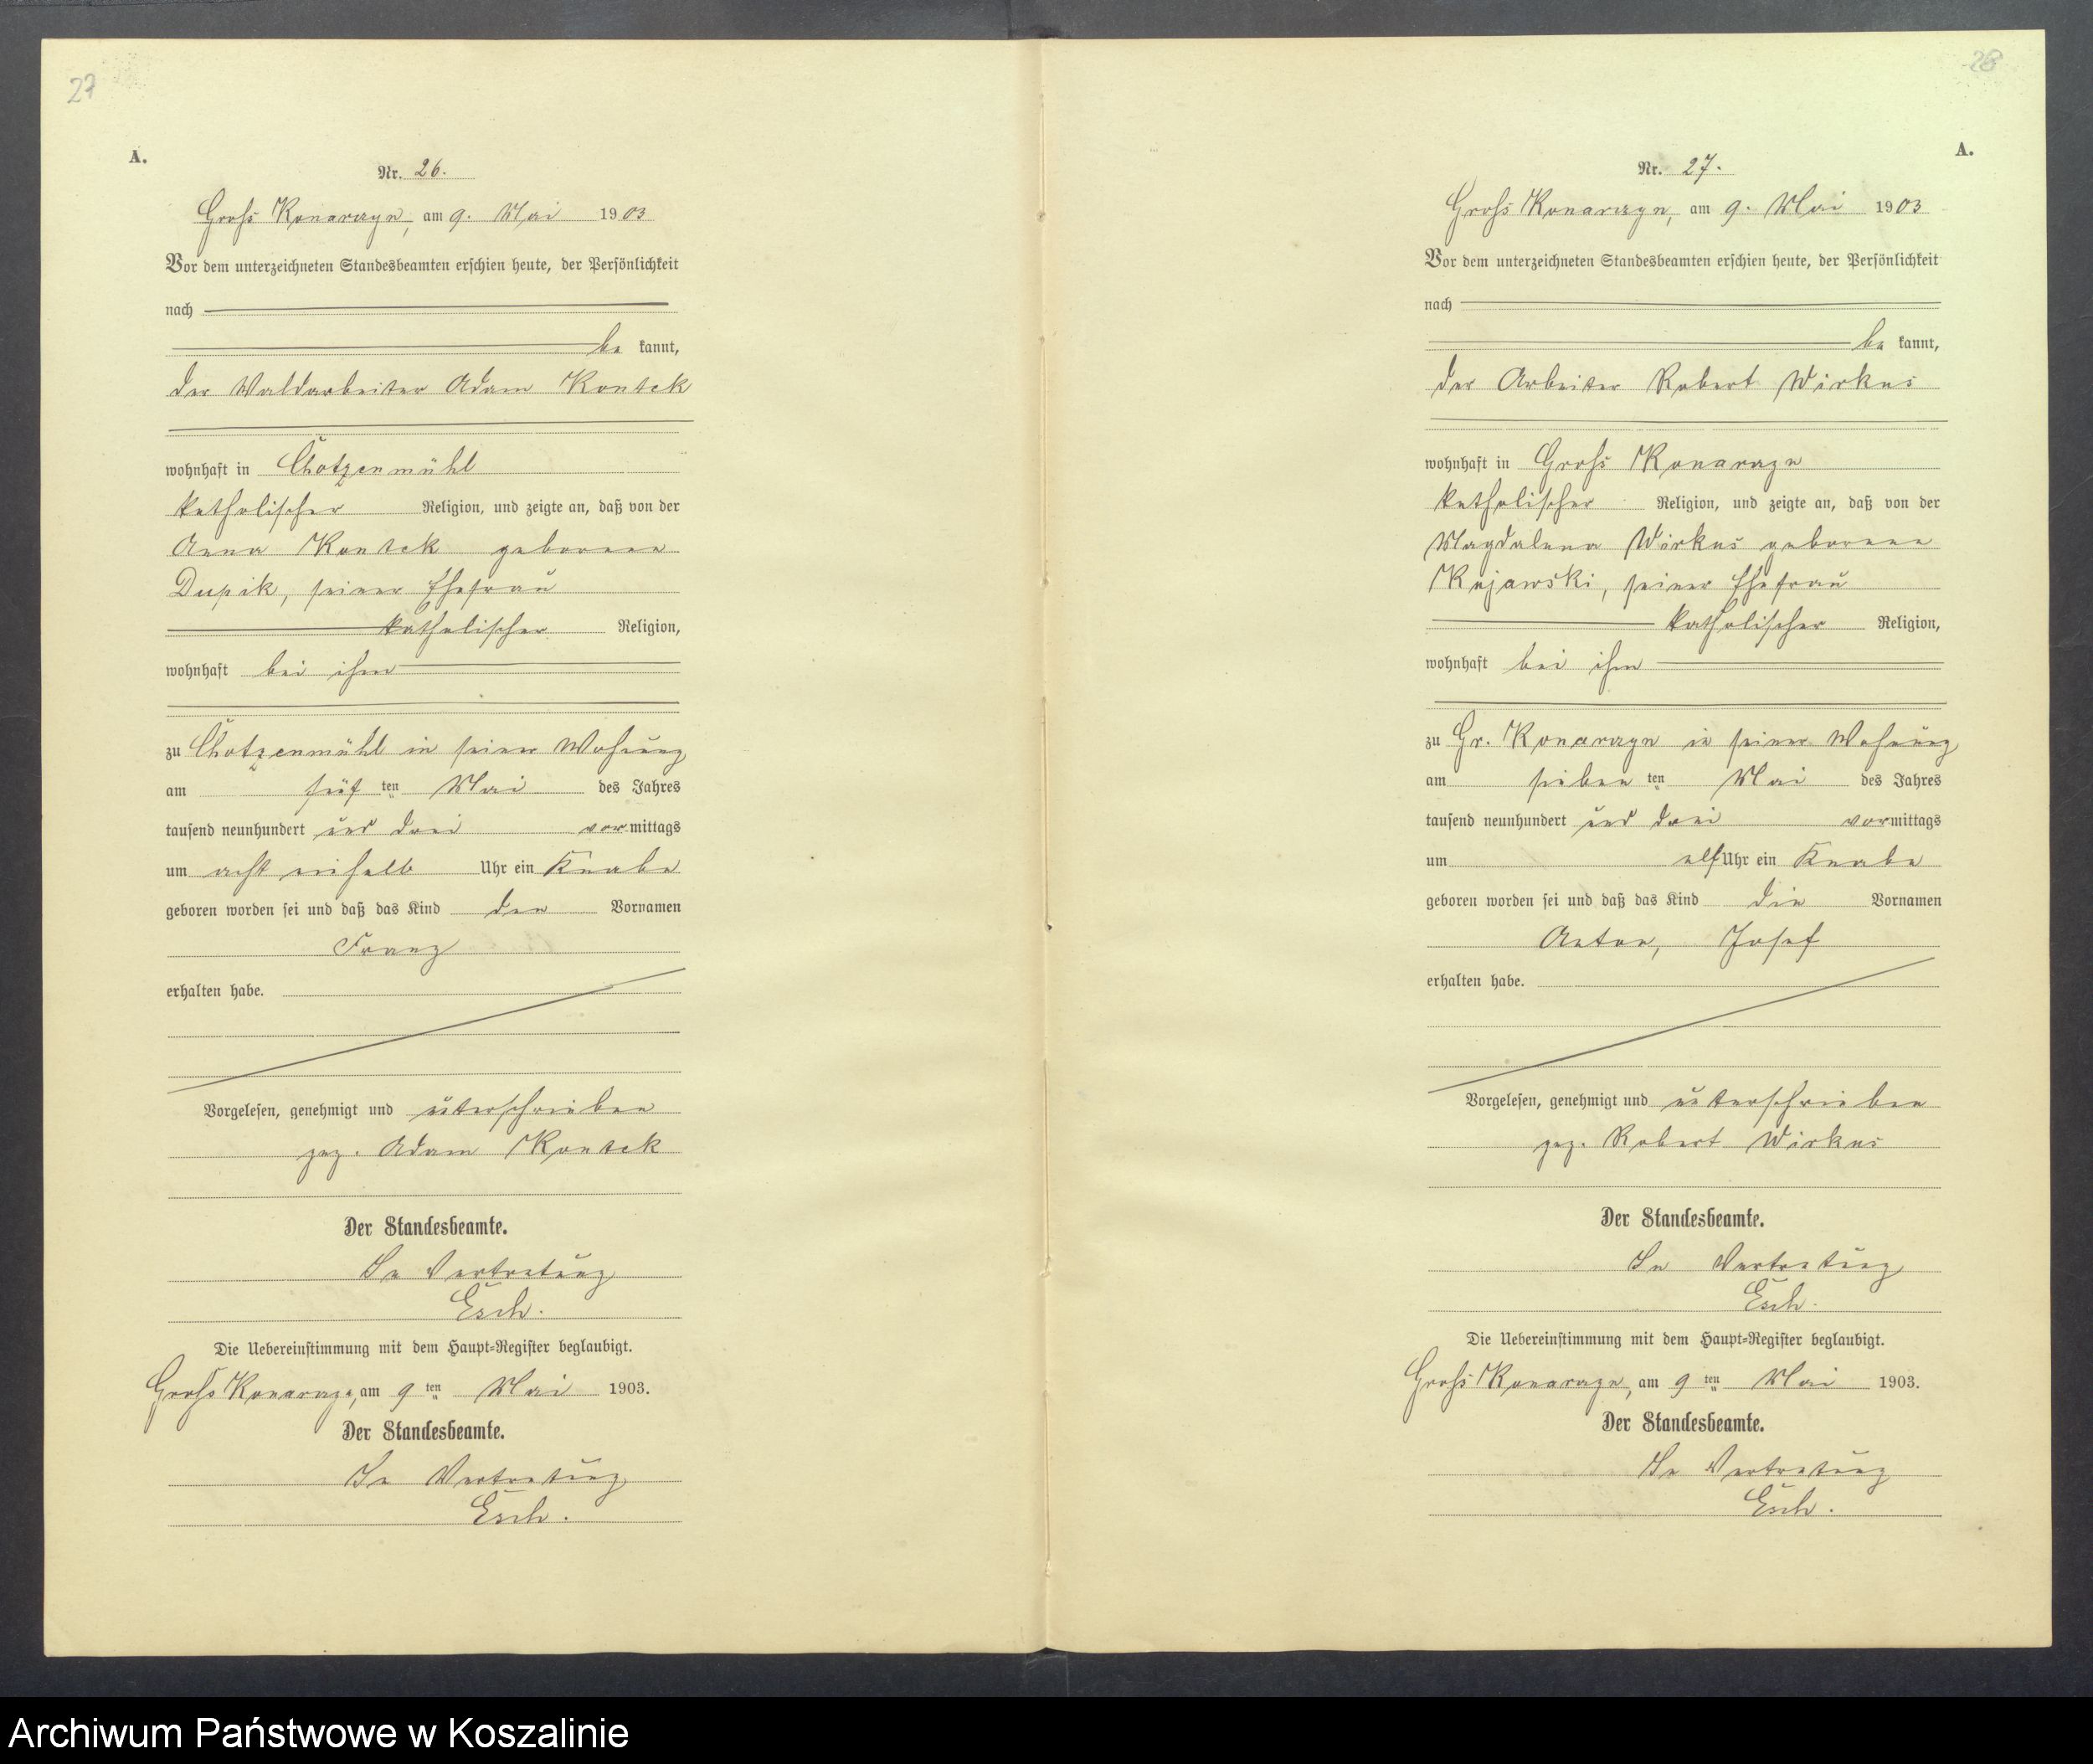 27
A.
Nr. 26.
Groß Konarzyn, am 9. Mai 1903
Vor dem unterzeichneten Standesbeamten erschien heute, der Persönlichkeit
nach
be kannt,
der Waldarbeiter Adam Kontek
wohnhaft in Chotzenmühl
katholischer Religion, und zeigte an, daß von der
Anna Kontek geborene
Dupik, seiner Ehefrau
katholischer Religion,
wohnhaft bei ihm
zu Chotzenmühl in seiner Wohnung
am fünf ten Mai des Jahres
tausend neunhundert und drei vormittags
um acht einhalb Uhr ein Knabe
geboren worden sei und daß das Kind den Vornamen
Franz
erhalten habe.
Vorgelesen, genehmigt und unterschrieben
gez. Adam Kontek
Der Standesbeamte.
In Vertretung
Esch.
Die Uebereinstimmung mit dem Haupt-Register beglaubigt.
Groß Konarzyn, am 9 ten Mai 1903.
Der Standesbeamte.
In Vertretung
Esch.
28
A.
Nr. 27.
Groß Konarzyn, am 9. Mai 1903
Vor dem unterzeichneten Standesbeamten erschien heute, der Persönlichkeit
nach
be kannt,
der Arbeiter Robert Wirkus
wohnhaft in Groß Konarzyn
katholischer Religion, und zeigte an, daß von der
Magdalena Wirkus geborene
Kujawski, seiner Ehefrau
katholischer Religion,
wohnhaft bei ihm
zu Gr. Konarzyn in seiner Wohnung
am sieben ten Mai des Jahres
tausend neunhundert und drei vormittags
um elf Uhr ein Knabe
geboren worden sei und daß das Kind die Vornamen
Anton, Josef
erhalten habe.
Vorgelesen, genehmigt und unterschrieben
gez. Robert Wirkus
Der Standesbeamte.
In Vertretung
Esch.
Die Uebereinstimmung mit dem Haupt-Register beglaubigt.
Groß Konarzyn, am 9 ten Mai 1903.
Der Standesbeamte.
In Vertretung
Esch.
Archiwum Państwowe w Koszalinie